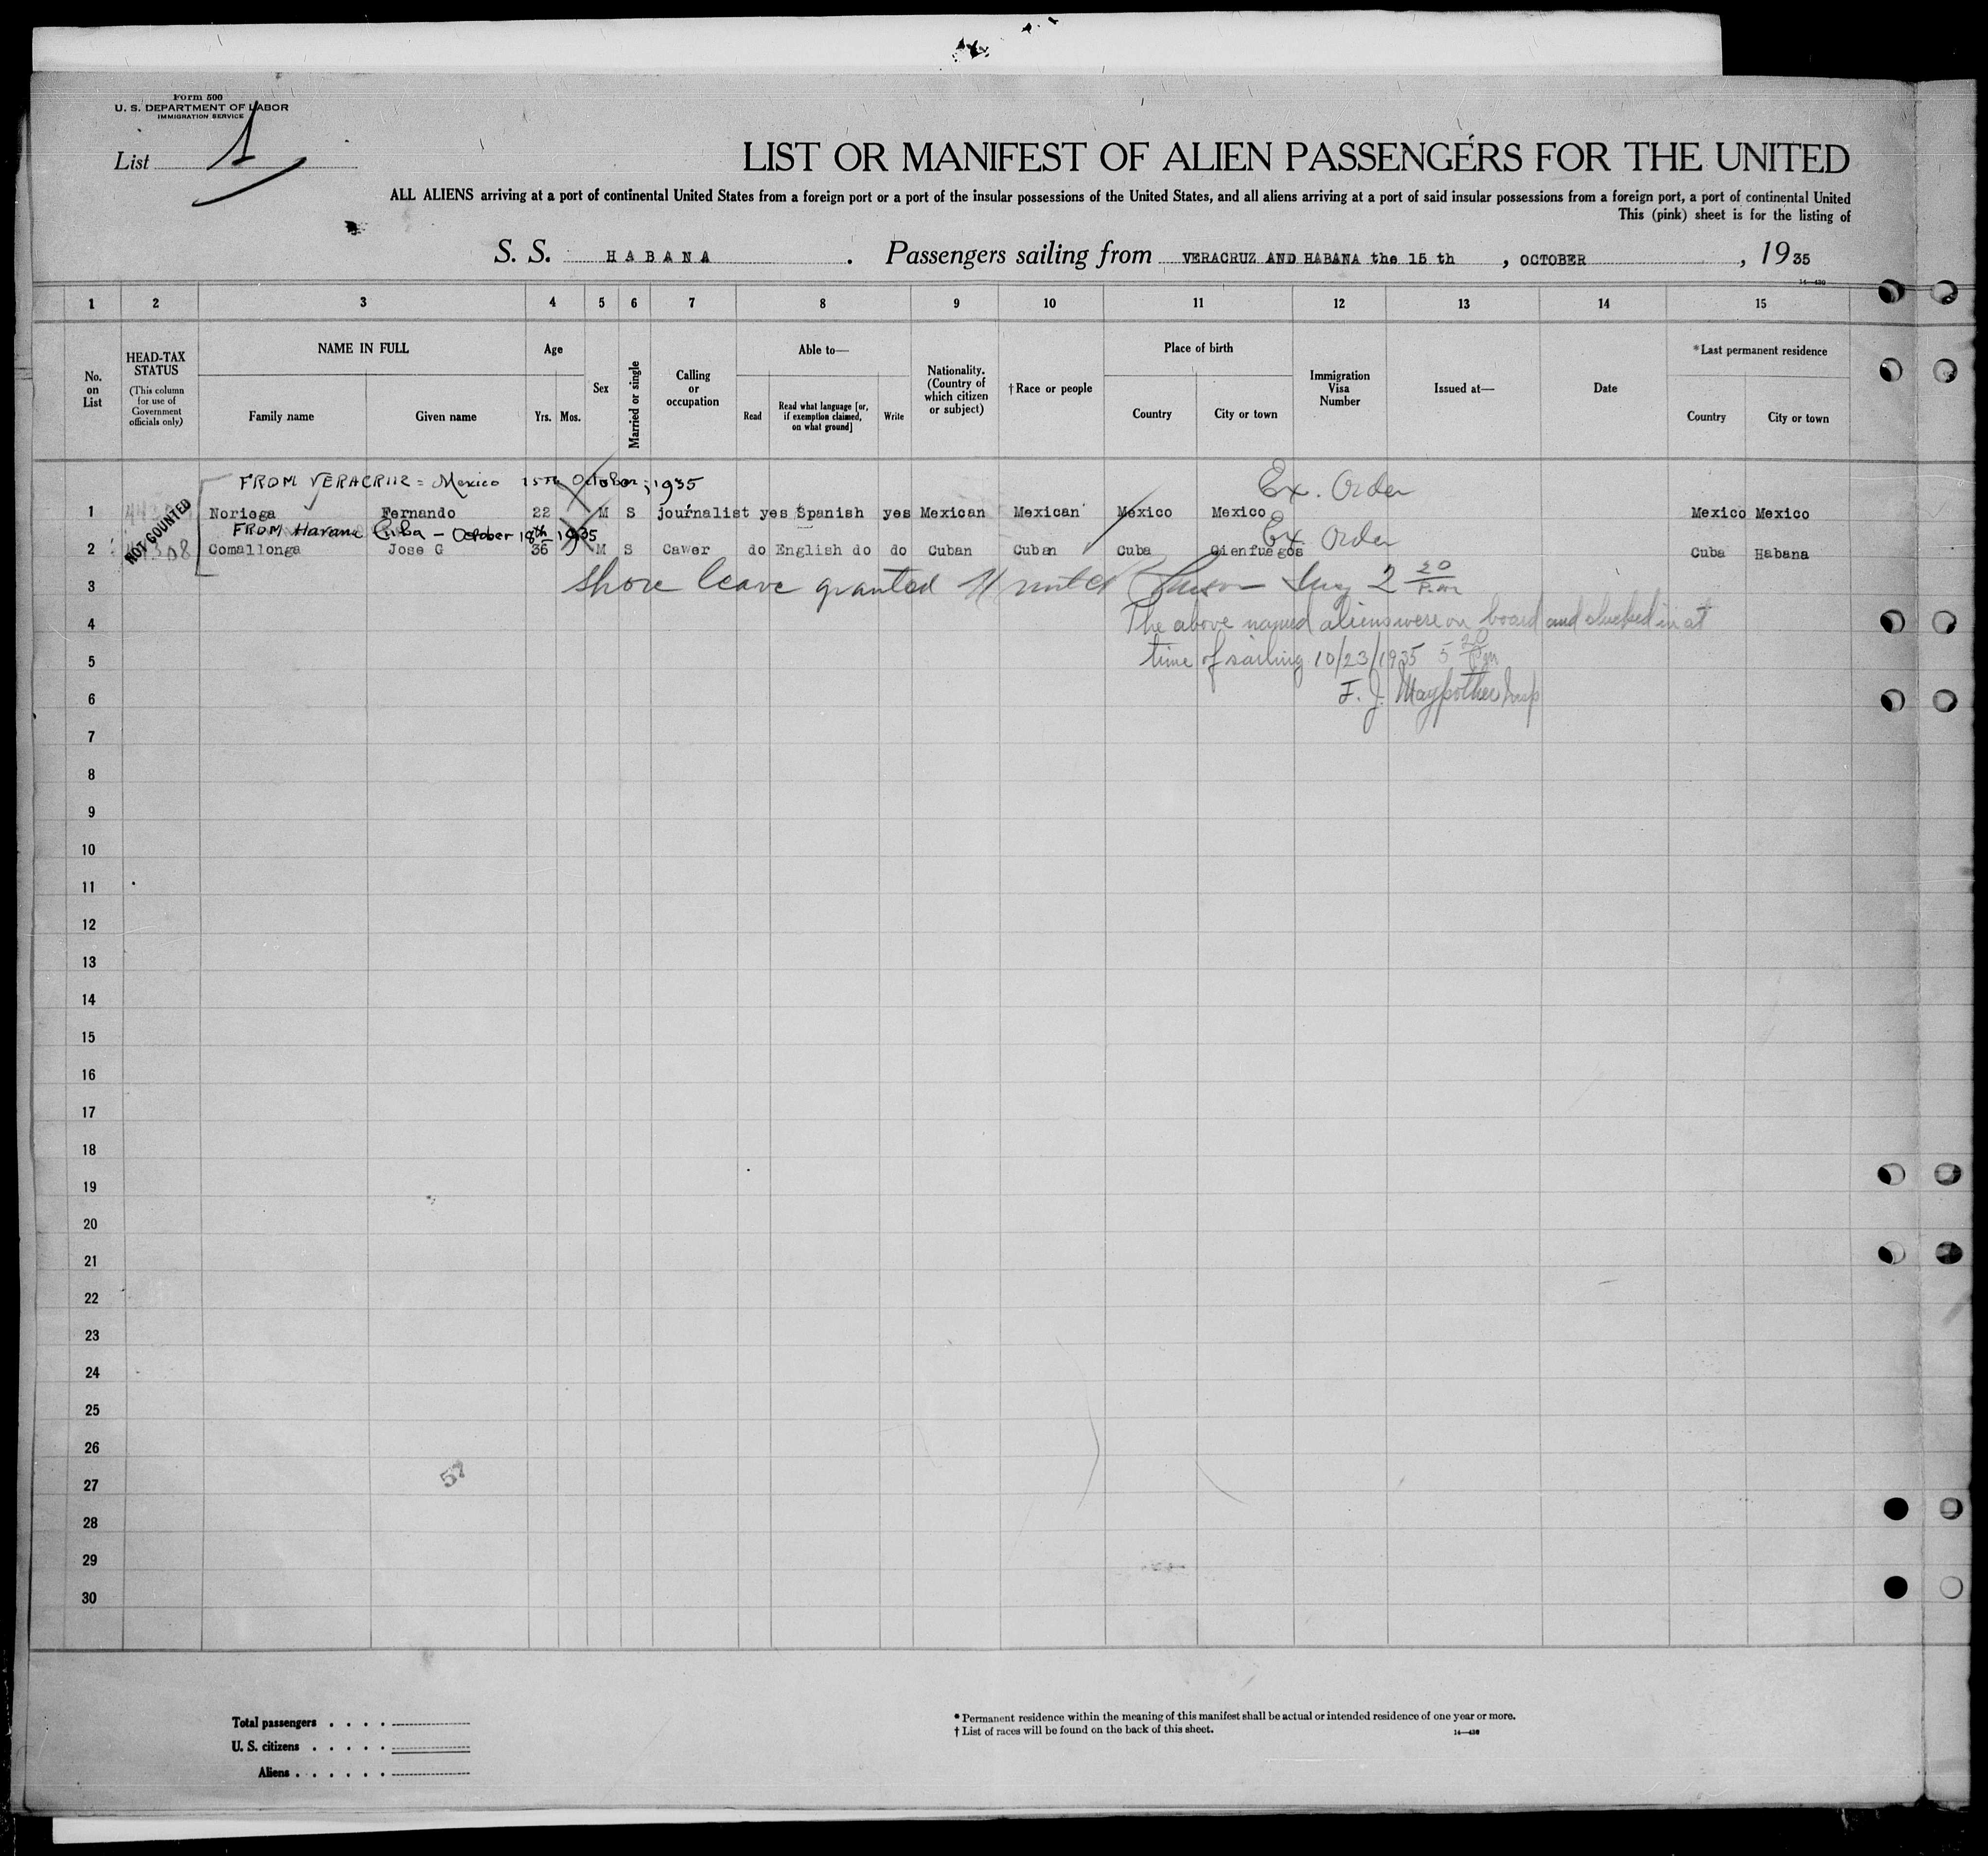 Form 500
U. S. DEPARTMENT OF LABOR
IMMIGRATION SERVICE
List 1
LIST OR MANIFEST OF ALIEN PASSENGERS FOR THE UNITED
ALL ALIENS arriving at a port of continental United States from a foreign port or a port of the insular possessions of the United States, and all aliens arriving at a port of said insular possessions from a foreign port, a port of continental United
This (pink) sheet is for the listing of
S. S. HABANA . Passengers sailing from VERACRUZ AND HABANA the 15 th , OCTOBER , 19 35
14—430
1 2 3 4 5 6 7 8 9 10 11 12 13 14 15
No. on List
HEAD-TAX STATUS
(This column for use of Government officials only)
NAME IN FULL
Family name
Given name
Age
Yrs. Mos.
Sex
Married or single
Calling or occupation
Able to—
Read
Read what language [or, if exemption claimed, on what ground]
Write
Nationality. (Country of which citizen or subject)
† Race or people
Place of birth
Country
City or town
Immigration Visa Number
Issued at—
Date
* Last permanent residence
Country
City or town
FROM VERACRUZ = Mexico 15th October, 1935 Ex. Order
NOT COUNTED
1 Noriega Fernando 22 M S journalist yes Spanish yes Mexican Mexican Mexico Mexico Mexico Mexico
FROM Havana Cuba – October 18th 1935 Ex. Order
2 Comallonga Jose G 36 M S Cawer do English do do Cuban Cuban Cuba Cienfuegos Cuba Habana
3 Shore leave granted 2 20 P.m
4 The above named aliens were on board and checked in at
5 time of sailing 10/23/1935 5 20 pm
6 F. J. Maypother Insp
7
8
9
10
11
12
13
14
15
16
17
18
19
20
21
22
23
24
25
26
27
57
28
29
30
Total passengers . . . .
U. S. citizens . . . . .
Aliens . . . . . .
* Permanent residence within the meaning of this manifest shall be actual or intended residence of one year or more.
† List of races will be found on the back of this sheet.
14—430